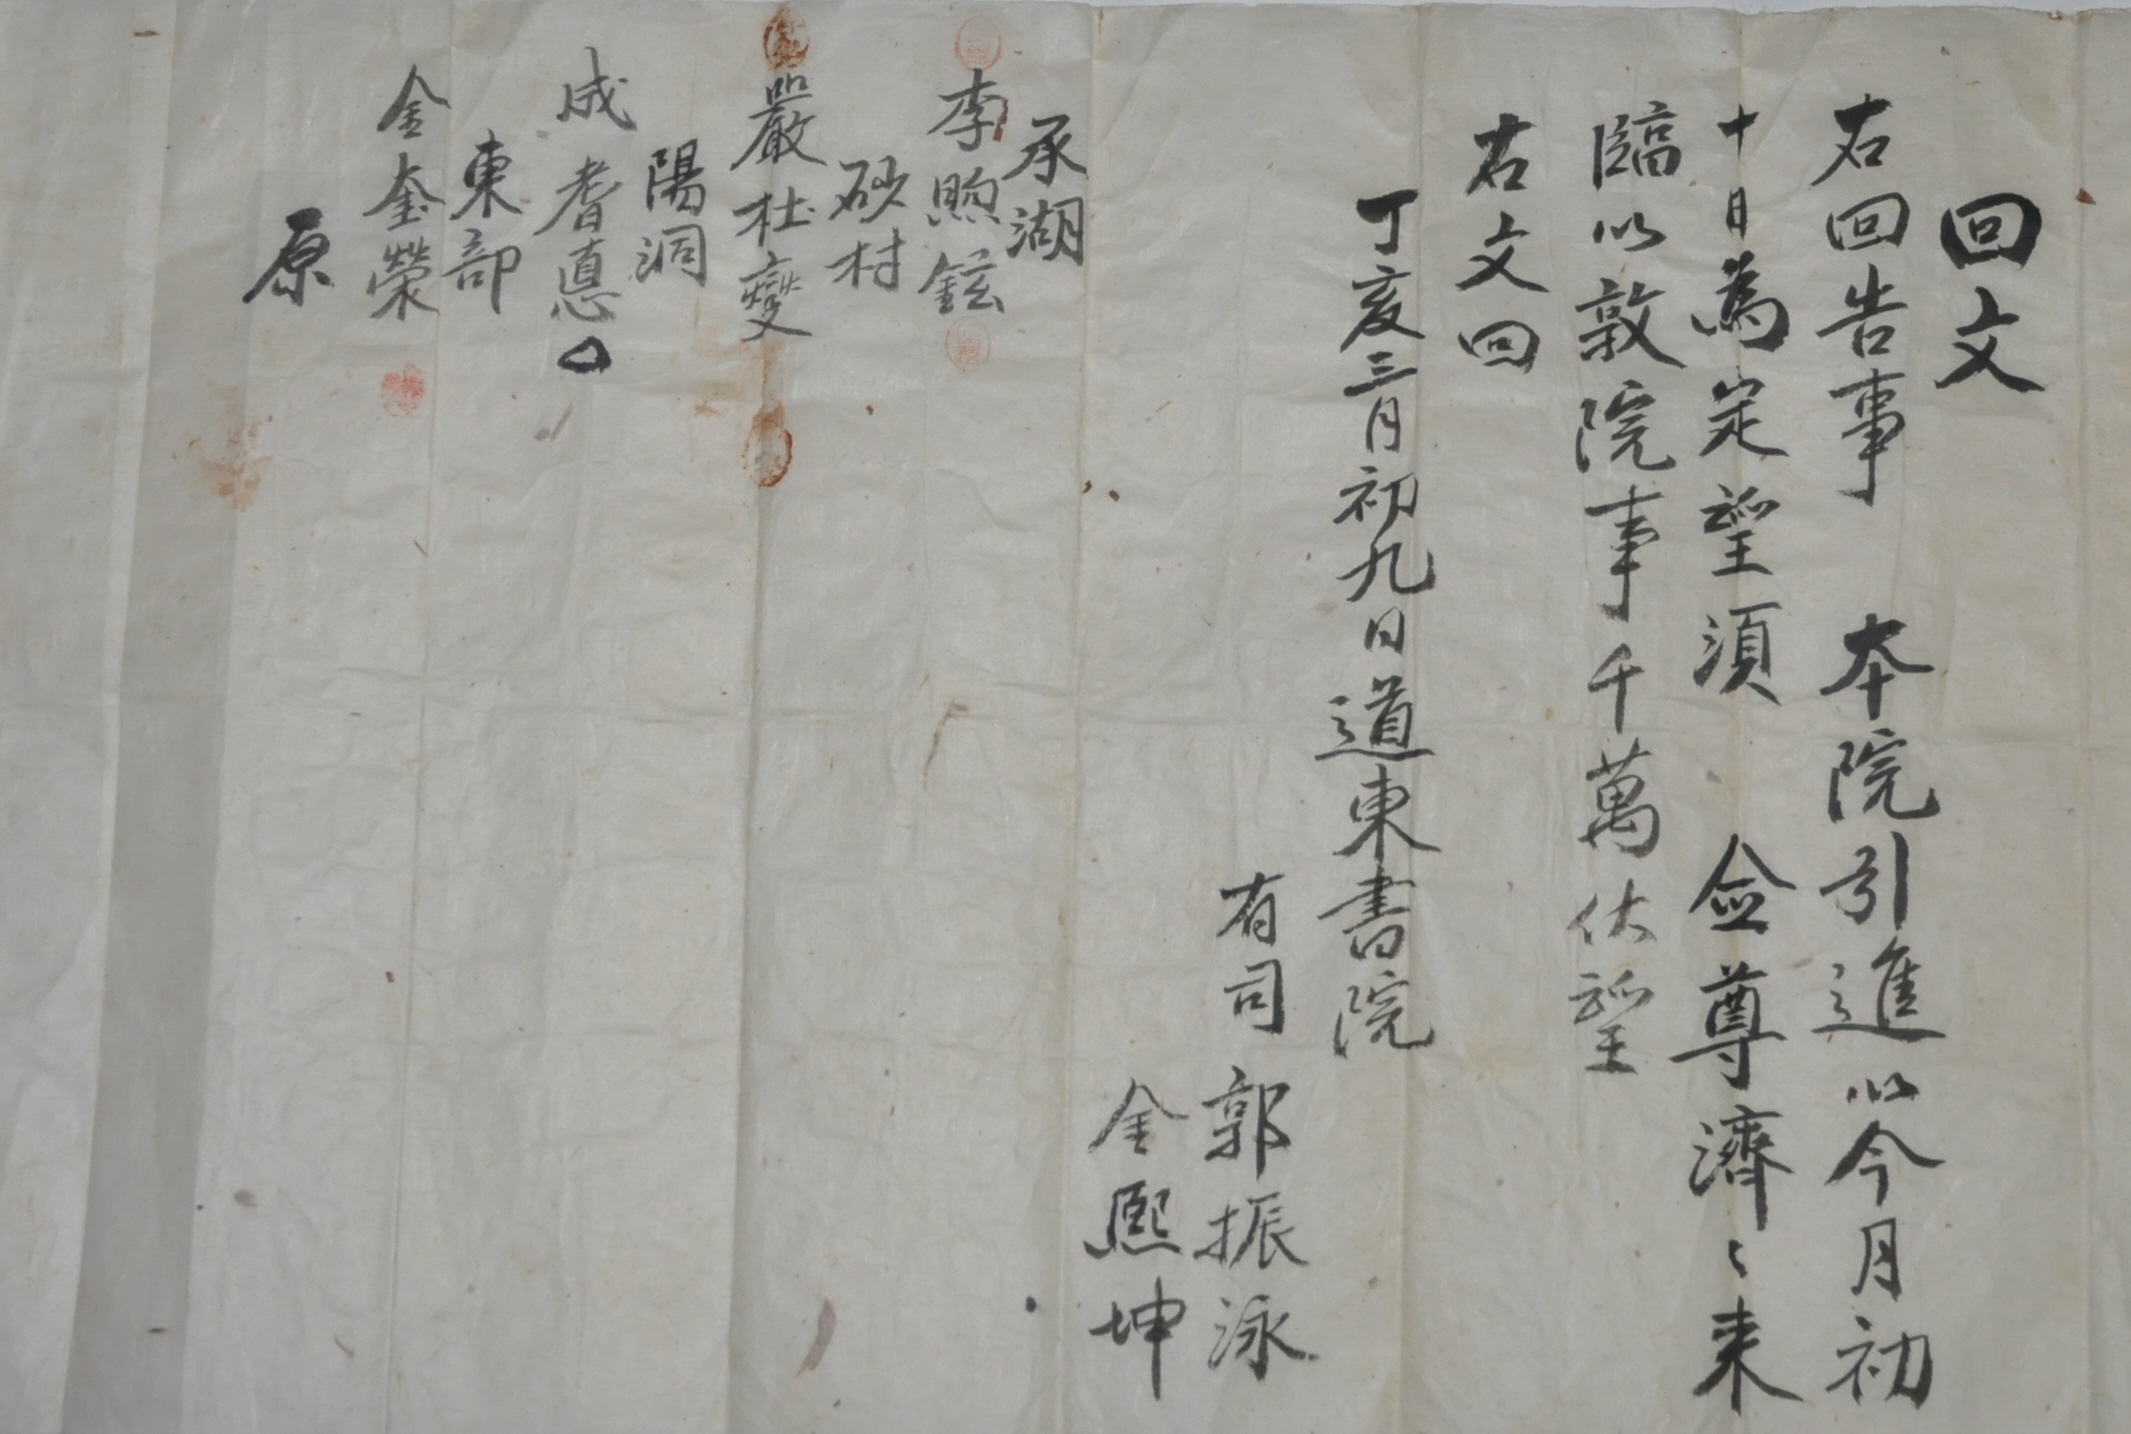 回文
右回告事 本院引進以今月初
十日爲定望須 僉尊濟〻来
臨以敦院事千萬伏望
右文回
丁亥三月初九日道東書院
有司郭振泳
金熙坤
承湖
李煦鉉
砂村
嚴柱燮
陽洞
成耆悳
東部
金奎榮
原